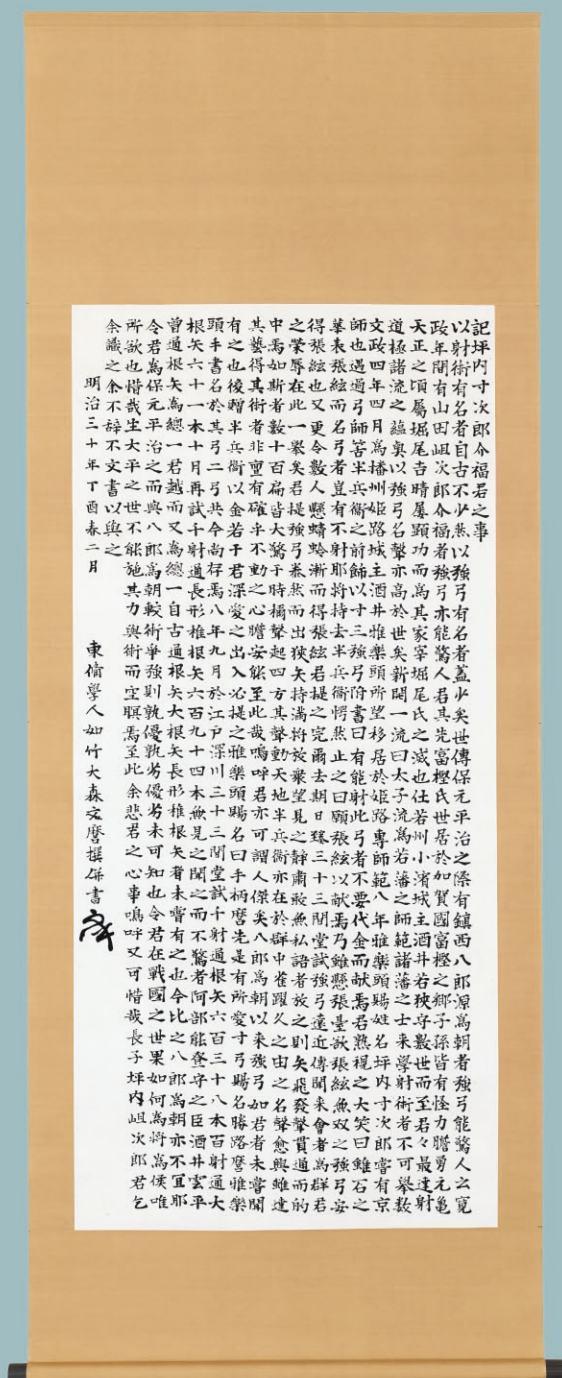 記坪内寸次郎介福君之事
以射術有名者自古不少然以強弓有名者蓋少矣世傳保元平治之際有鎮西八郎源為朝者強弓能驚人玄寛
政年間有山田岨次郎介福者強弓亦能驚人君其先富樫氏世居於加賀國富樫之郷子孫皆有怪力膽勇元亀
天正之頃屬堀尾吉晴屡顕功而為其家宰堀尾氏之滅也仕若州小濱城主酒井若狭守數世而至君々最達射
道極諸流之蘊奥以強弓名聲亦高於世矣新開一流曰太子流為若藩之師範諸藩之士来學射術者不可擧数
文政四年四月為播州姫路城主酒井雅樂頭所望移居於姫路專師範八年雅樂頭賜姓名坪内寸次郎嘗有京
師也過過弓師笘半兵衛之前飾以寸三強弓附書曰有能射此弓者不要代金而献焉君熟視之大笑曰雖石之
墓表張絃而名弓者豈有不射耶将持去半兵衛愕然止之曰願張絃以献焉乃雖懸張臺欲張絃無双之強弓安
得張絃也又更令數人懸蜻蛉漸而得張絃君提之完爾去期日臻三十三間堂試強弓遠近傳聞来會者為群君
之榮辱在此一擧矣君提強弓泰然而出狭矢持満將放衆望見之静肅敢無私語者放之則矢飛發聲貫通而的
中焉如斯者數十百扁皆大驚于時稱聲起四方其聲動天地半兵衛亦在於群中雀躍久之由之名聲愈興雖達
其藝得其術者非亶有確乎不動之心膽安能至此哉嗚呼君亦可謂人傑矣八郎為朝以来強弓如君者未嘗聞
有之也後贈半兵衛以金若干君深愛之出入必提之雅樂頭賜名曰手柄麿先是有所愛寸弓賜名勝路麿雅樂
頭手書名於其弓二弓共今尚存焉八年九月於江戸深川三十三間堂試千射通根矢六百三十八本百射通大
根矢六十一本十月再試千射通長形椎根矢六百九十四本無見之聞之而不驚者阿部能登守之臣酒井雲平
曾通根矢為總一君越而又為總一自古通根矢大根矢長形椎根矢者未嘗有之也今比之八郎為朝亦不宜耶
令君為保元平治之而與八郎為朝較術爭強則孰優孰劣優劣未可知也令君在戰國之世果如何為將為侯唯
所欲也惜哉生大平之世不能施其力與術而空瞑焉至此余悲君之心事嗚呼又可惜哉長子坪内岨次郎君乞
余識之余不辞不文書以與之
明治三十年丁酉春二月
東備學人如竹大森安麿撰併書